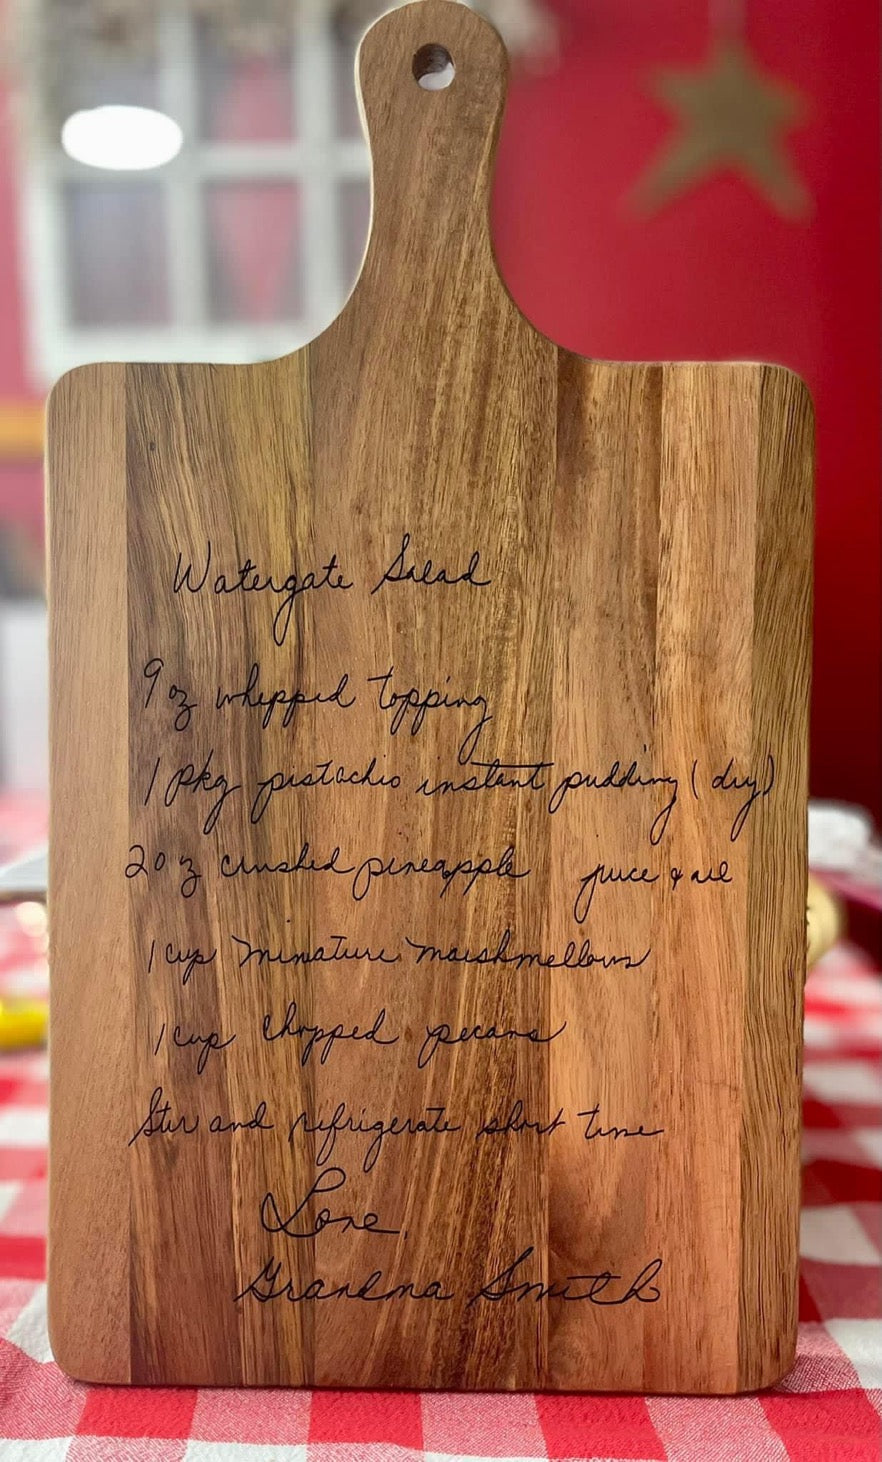 Watergate Salad
9 oz whipped topping
1 pkg pistachio instant pudding (dry)
20 oz crushed pineapple juice & all
1 cup miniature marshmellows
1 cup chopped pecans
Stir and refrigerate short time
Love,
Grandma Smith